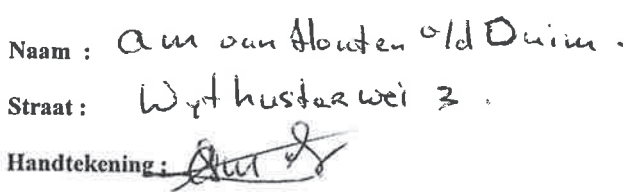 Naam : am van Houten o/d Duim.
Straat : Wythusterwei 3.
Handtekening :